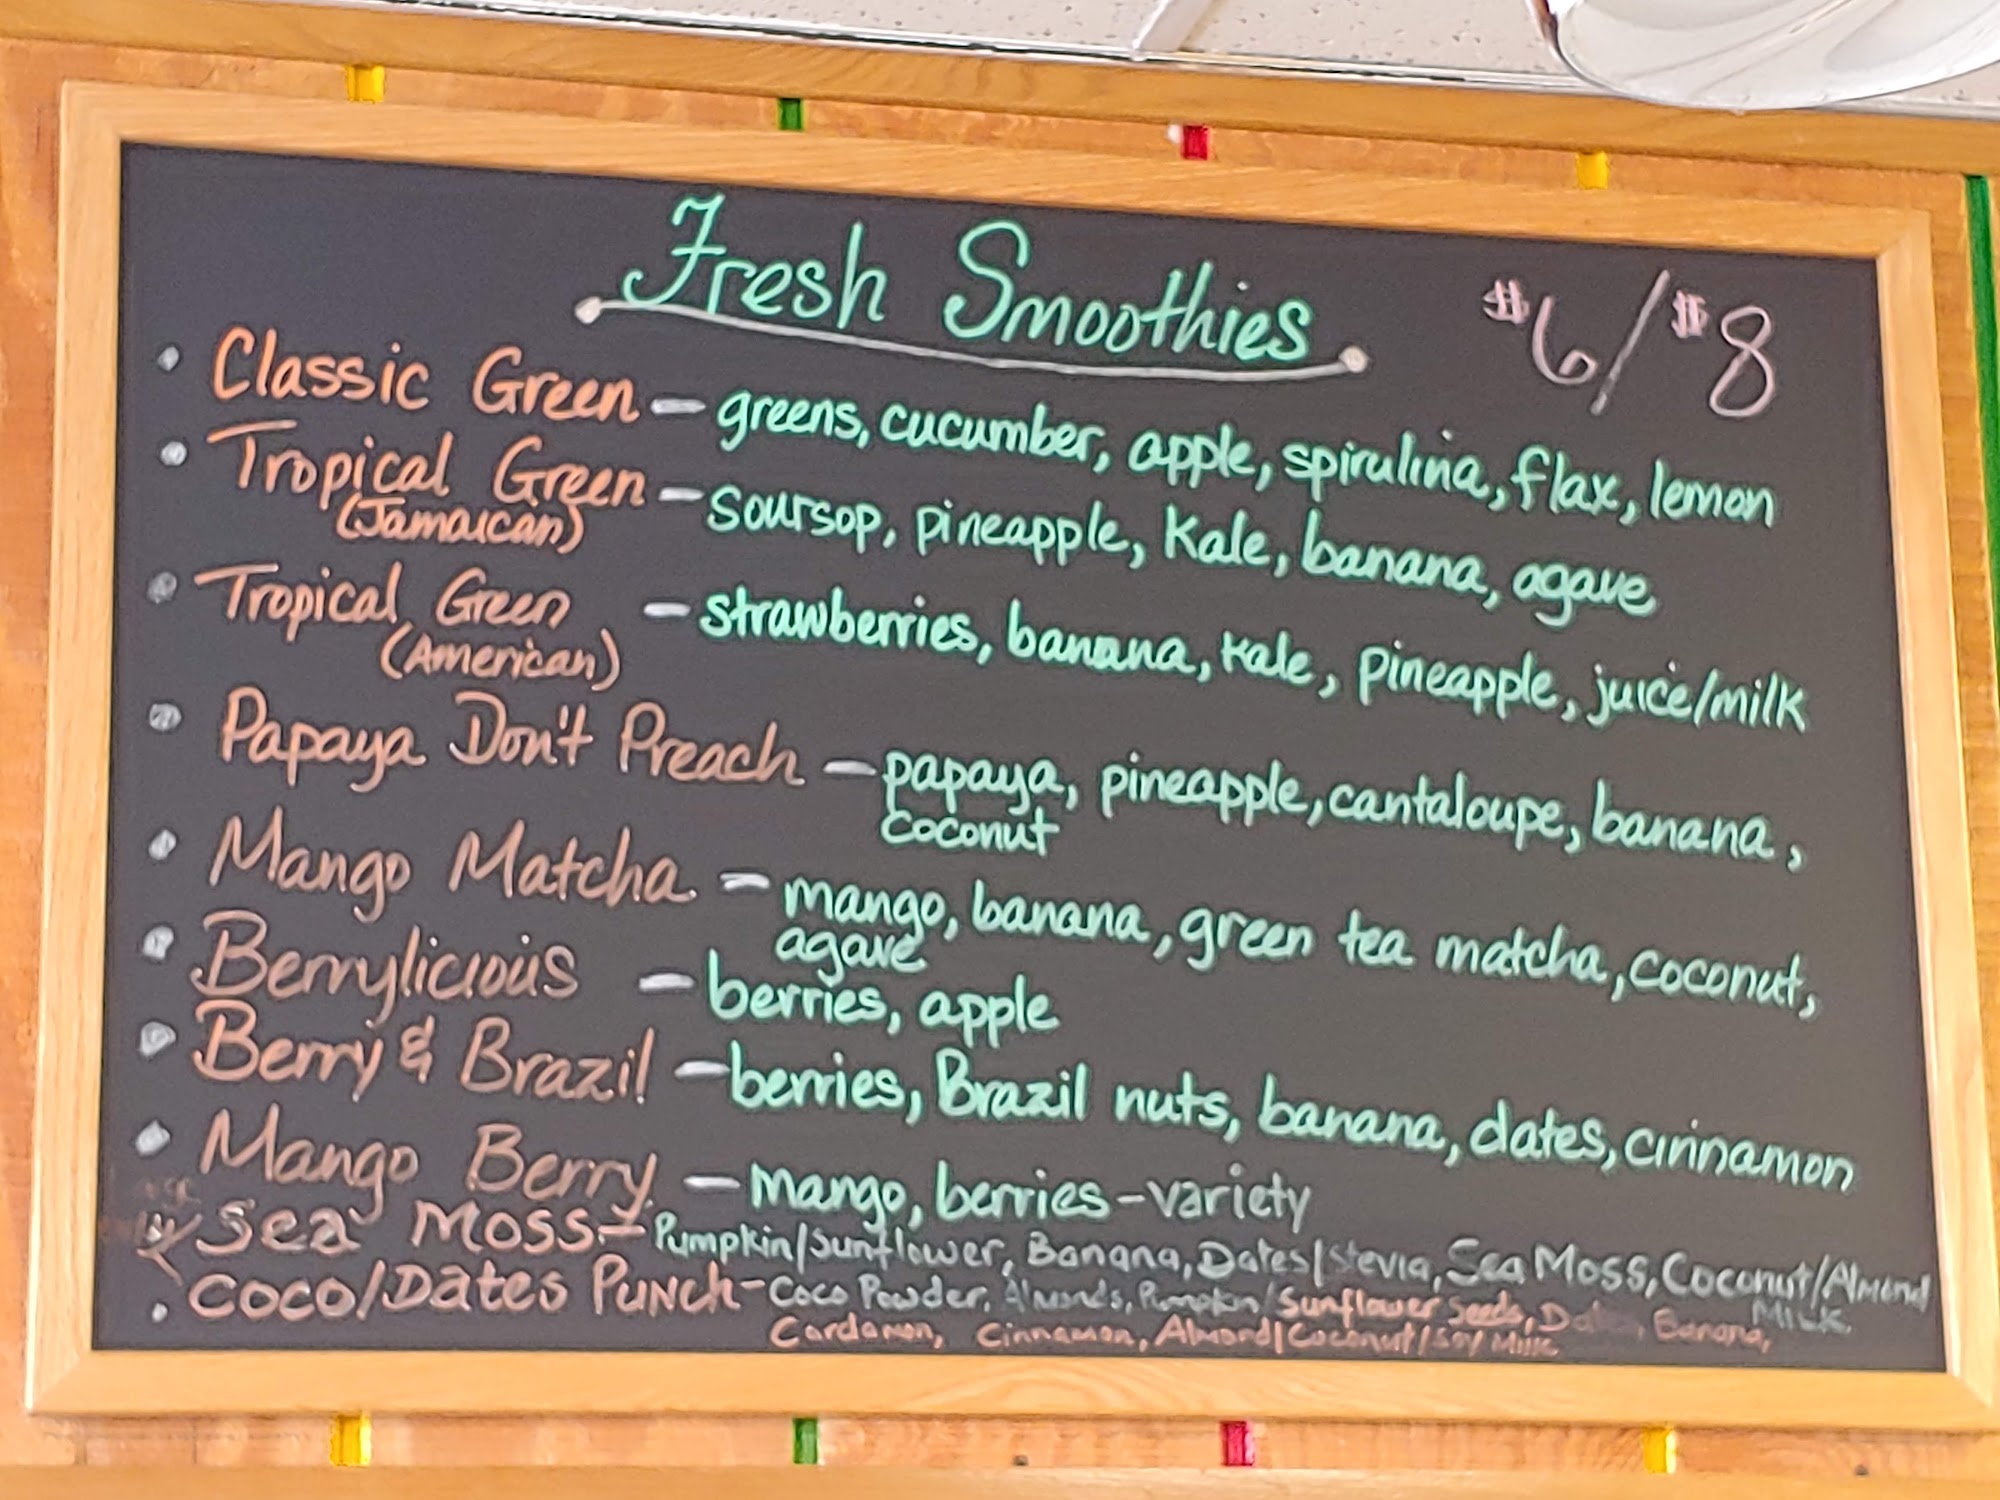 Fresh Smoothies $6/$8
• Classic Green — greens, cucumber, apple, spirulina, flax, lemon
• Tropical Green — soursop, pineapple, Kale, banana, agave
(Jamaican)
• Tropical Green — strawberries, banana, kale, pineapple, juice/milk
(American)
• Papaya Don't Preach — papaya, pineapple, cantaloupe, banana,
coconut
• Mango Matcha — mango, banana, green tea matcha, coconut,
agave
• Berrylicious — berries, apple
• Berry & Brazil — berries, Brazil nuts, banana, dates, cinnamon
• Mango Berry — mango, berries - variety
Sea Moss — Pumpkin/Sunflower, Banana, Dates/Stevia, Sea Moss, Coconut/Almond
Milk
• Coco/Dates Punch - Coco Powder, Almonds, Pumpkin/Sunflower Seeds, Dates, Banana,
Cardamon, Cinnamon, Almond/Coconut/Soy Milk